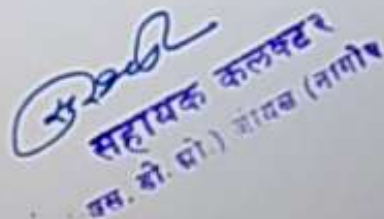 सहायक कलक्टर
एस. डी. ओ.) जायल (नागौर